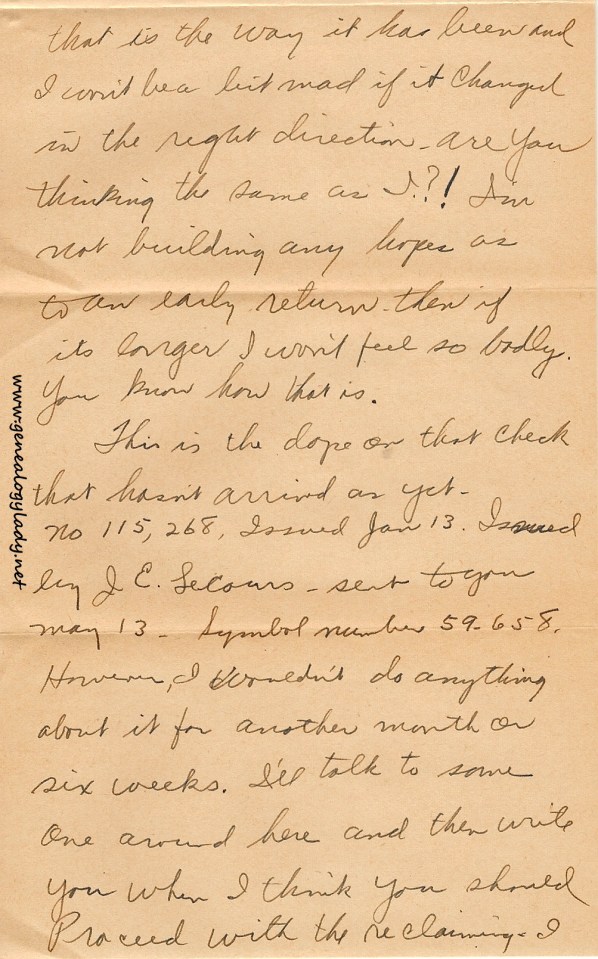 that is the way it has been and
I won't be a bit mad if it changed
in the right direction - are you
thinking the same as I.?! I'm
not building any hopes as
to an early return - then if
its longer I won't feel so badly.
You know how that is.
This is the dope on that check
that hasn't arrived as yet -
no 115,268, Issued Jan 13. Issued
by J E. Secours - sent to you
may 13 - Symbol number 59-658.
However, I wouldn't do anything
about it for another month or
six weeks. I'll talk to some
one around here and then write
you when I think you should
Proceed with the reclaiming - I
www.genealogylady.net